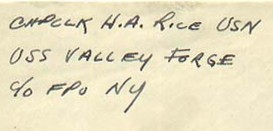 CHPCLK H.A. RICE USN
USS VALLEY FORGE
c/o FPO NY